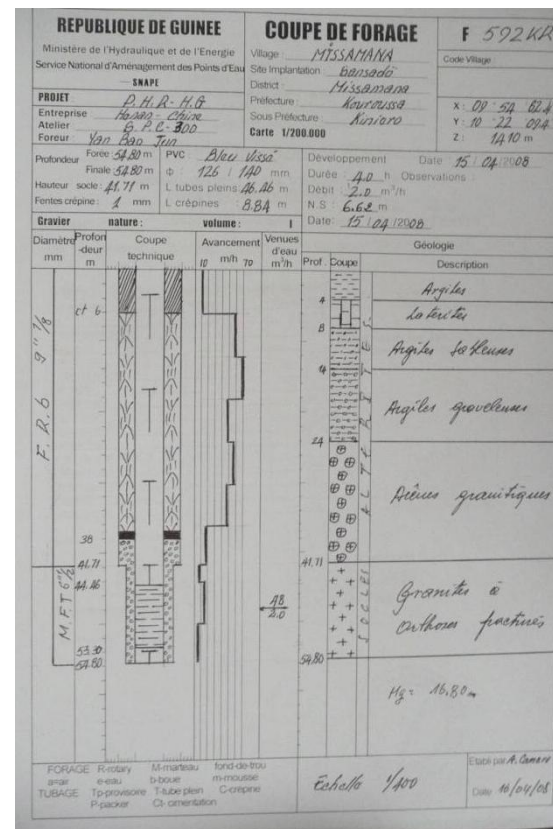 REPUBLIQUE DE GUINEE
Ministère de l'Hydraulique et de l'Energie
Service National d'Aménagement des Points d'Eau
SNAPE
COUPE DE FORAGE
F 592KR
Village : MISSAMANA
Code Village :
Site Implantation : Bansadö
District : Missamana
Préfecture : Kouroussa
Sous Préfecture : Kiniero
Carte 1/200.000
X : 09 54
Y : 10 22
Z :
PROJET P.H.R-H.G
Entreprise Henan-Chine
Atelier G.P.C-300
Foreur : Yan Bao Jun
Profondeur Forée 54.80 m
Finale 54.80 m
Hauteur socle : 41.71 m
Fentes crépine : 1 mm
PVC : Bleu Vissé
Φ : 126 / 140 mm
L tubes pleins 46.46 m
L crépines : 8.84 m
Développement Date 15 / 04 / 2008
Durée : 4.0 h Observations :
Débit : 2.0 m³/h
N.S : 6.62 m
Date: 15 / 04 / 2008
Gravier nature : volume : l
Diamètre mm
Profondeur m
Coupe technique
Avancement
10 m/h 70
Venues d'eau m³/h
Géologie
Prof. Coupe Description
F.R.b 9"7/8
M.F.T 6"1/2
ct 6
38
41.71
44.46
53.30
54.80
48
2.0
4
8
24
41.71
54.80
ALTERITES
SOCLES
Argiles
Laterites
Argiles sableuses
Argiles graveleuses
Arènes granitiques
Granites à
Orthoses fracturés
Hg = 16.80m
FORAGE R-rotary M-marteau fond-de-trou
a=air e-eau b-boue m-mousse
TUBAGE Tp-provisoire T-tube plein C-crépine
P-packer Ct- cimentation
Echelle 1/400
Etabli par A. Camara
Date 16/04/08